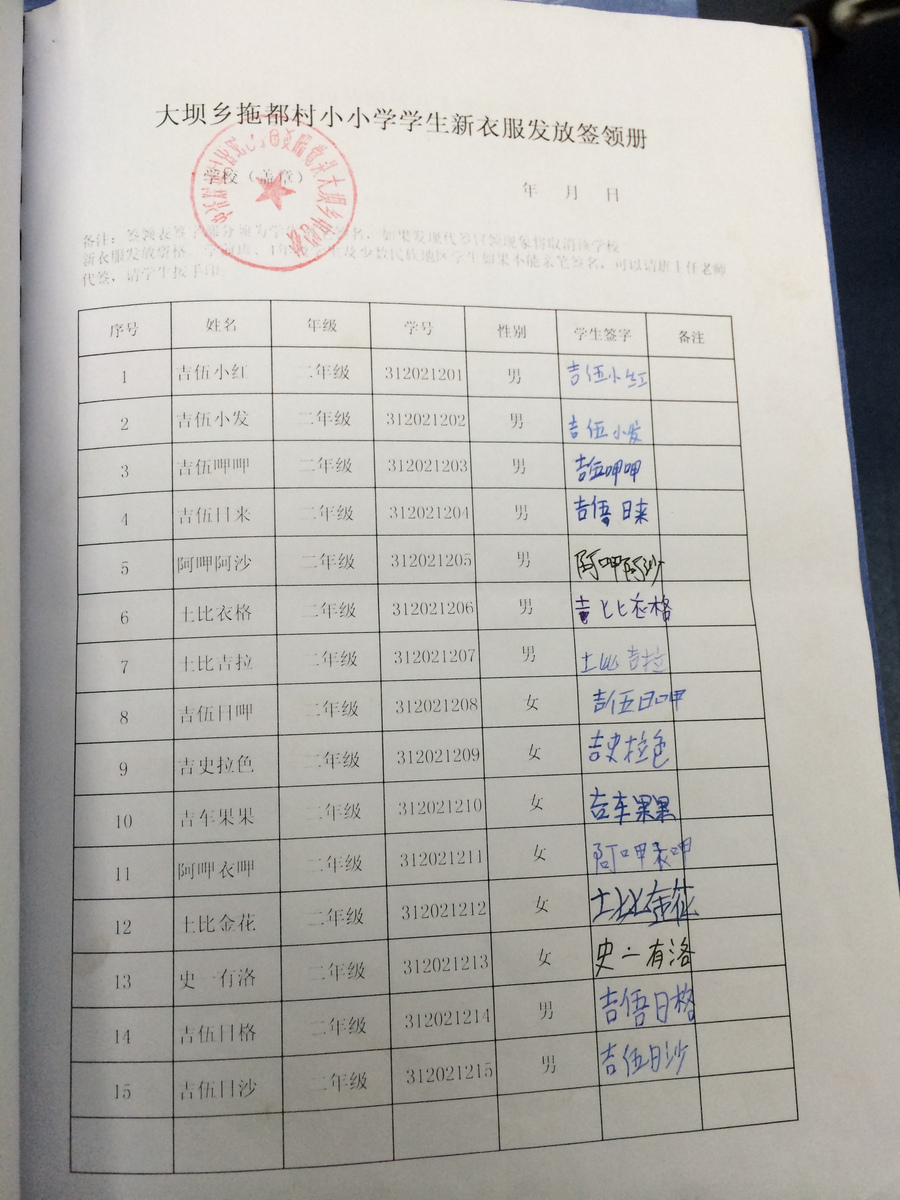 大坝乡拖都村小小学学生新衣服发放签领册
学校（盖章）
年 月 日
备注：签领表签字部分须为学生亲笔签名，如果发现代签冒领现象将取消该学校
新衣服发放资格。学前班、1年级学生及少数民族地区学生如果不能亲笔签名，可以请班主任老师
代签，请学生按手印
序号 姓名 年级 学号 性别 学生签字 备注
1 吉伍小红 二年级 312021201 男 吉伍小红
2 吉伍小发 二年级 312021202 男 吉伍小发
3 吉伍呷呷 二年级 312021203 男 吉伍呷呷
4 吉伍日来 二年级 312021204 男 吉俉日来
5 阿呷阿沙 二年级 312021205 男 阿呷阿沙
6 土比衣格 二年级 312021206 男 比衣格
7 土比吉拉 二年级 312021207 男 土比吉拉
8 吉伍日呷 二年级 312021208 女 吉伍日呷
9 吉史拉色 二年级 312021209 女 吉史拉色
10 吉车果果 二年级 312021210 女 吉车果果
11 阿呷衣呷 二年级 312021211 女 阿呷衣呷
12 土比金花 二年级 312021212 女 土比金花
13 史一有洛 二年级 312021213 女 史一有洛
14 吉伍日格 二年级 312021214 男 吉俉日格
15 吉伍日沙 二年级 312021215 男 吉伍日沙